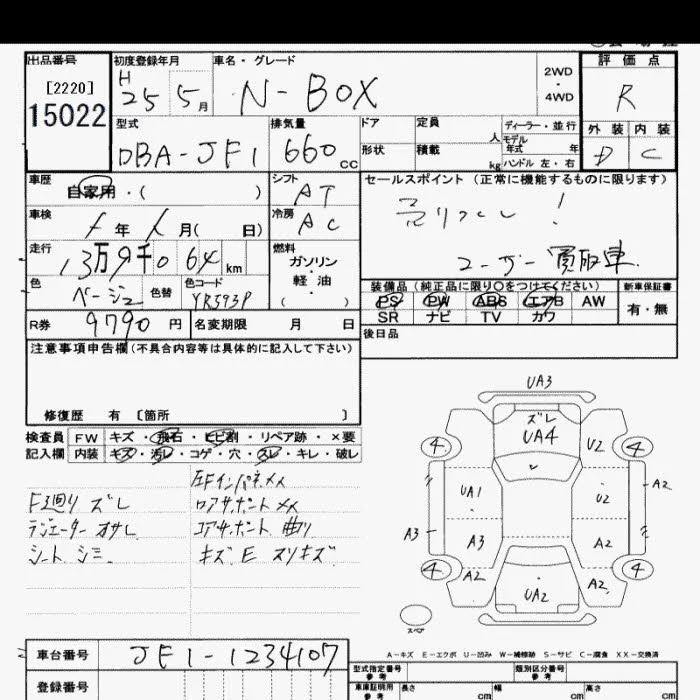 出品番号 初度登録年月 車名・グレード 評価点
[2220] H 2WD
15022 25 5月 N-BOX ・ R
4WD
型式 排気量 ドア 定員 人 ディーラー・並行 外装 内装
モデル年式 年
DBA-JF1 660cc 形状 積載 kg ハンドル 左・右 D C
車歴 シフト セールスポイント (正常に機能するものに限ります)
自家用・( ) AT
車検 冷房 売りつくし!
年 月( 日) AC
走行 燃料
13万9千064km ガソリン ユーザー買取車
色 色替 色コード ・ 装備品(純正品に限り○をつけてください) 新車保証書
ベージュ YR593P 軽油 PS PW ABS エアB AW 有・無
・( ) SR ナビ TV カワ
R券 9790円 名変期限 月 日 後日品
注意事項申告欄(不具合内容等は具体的に記入して下さい)
修復歴 有 [箇所 ]
検査員 FW キズ・飛石・ヒビ割・リペア跡・×要
記入欄 内装 キズ・汚レ・コゲ・穴・スレ・キレ・破レ
左Fインパネメメ
F3廻り ズレ ロアサポート メメ
ラジエーター オサレ コアサポート 曲り
シート シミ キズ、E スリキズ
UA3
ズレ
UA4
4 U2 4
UA1 U2 A2
A3 A3 A2
4 A2 A2 4
UA2
スペア
A-キズ E-エクボ U-凹み W-補修跡 S-サビ C-腐食 XX-交換済
車台番号 JF1-1234107
登録番号
型式指定番号 参考 類別区分番号 参考
車庫証明用 参考 長さ cm 幅 cm 高さ cm